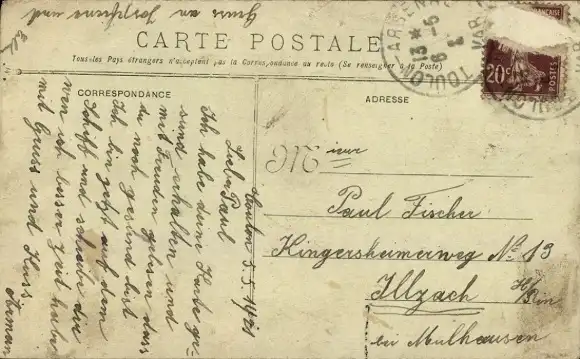 Gruss an Josephine und
CARTE POSTALE
Tous les Pays étrangers n'acceptent pas la Correspondance au recto (Se renseigner à la Poste)
CORRESPONDANCE
ADRESSE
Toulon 5.5.1921
Lieber Paul
Ich habe deine Karte ge-
sund erhalten und
mit Freuden gelesen dass
du noch gesund bist
Ich bin jetzt auf dem
Schiff und schreibe dir
wen ich besser Zeit habe
mit Gruss und Kuss
Arman
Monsieur
Paul Fischer
Kingersheimerweg No 13
Illzach H/Rhin
bei Mülhausen
TOULON
VAR
20c
POSTES